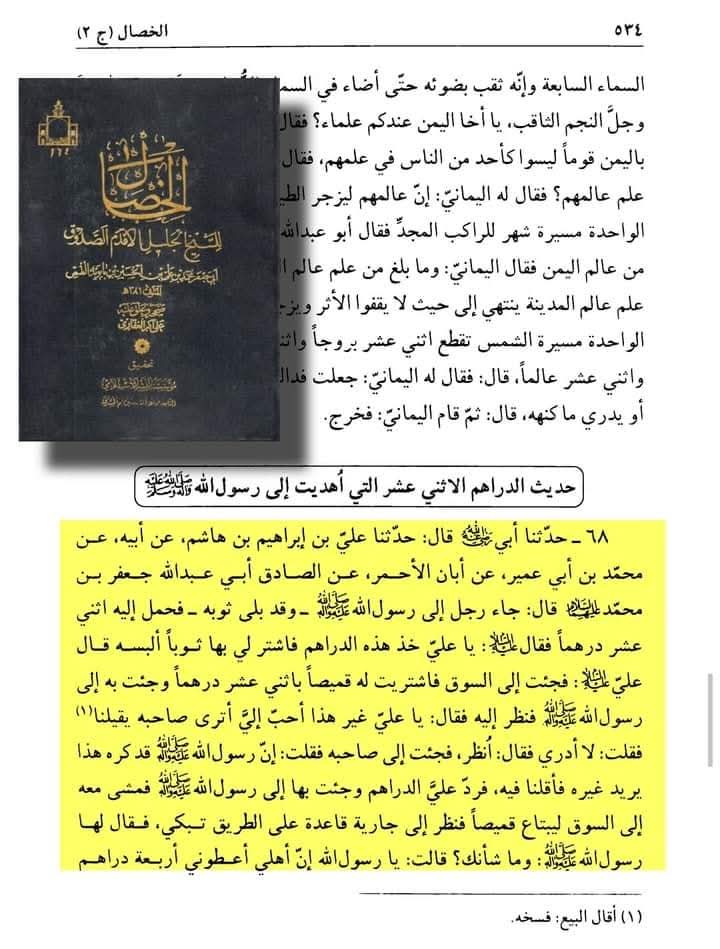 ٥٣٤
الخصال (ج ٢)
السماء السابعة وإنّه ثقب بضوئه حتّى أضاء في السماء
وجلَّ النجم الثاقب، يا أخا اليمن عندكم علماء؟ فقال
باليمن قوماً ليسوا كأحد من الناس في علمهم، فقال
علم عالمهم؟ فقال له اليمانيّ: إنّ عالمهم ليزجر الطير
الواحدة مسيرة شهر للراكب المجدِّ فقال أبو عبدالله
من عالم اليمن فقال اليمانيّ: وما بلغ من علم عالم
علم عالم المدينة ينتهي إلى حيث لا يقفوا الأثر ويزجر
الواحدة مسيرة الشمس تقطع اثني عشر بروجاً واثني
واثني عشر عالماً، قال: فقال له اليمانيّ: جعلت فداك
أو يدري ما كنهه، قال: ثمّ قام اليمانيّ: فخرج.
الخصال
للشيخ الجليل الأقدم الصدوق
أبي جعفر محمد بن علي بن الحسين بن بابويه القمي
المتوفى ٣٨١هـ
صححه وعلق عليه
علي أكبر الغفاري
تحقيق
مؤسسة النشر الإسلامي
١٦٤
حديث الدراهم الاثني عشر التي اُهديت إلى رسول الله ﷺ
٦٨ ـ حدّثنا أبي رضي الله عنه قال: حدّثنا عليّ بن إبراهيم بن هاشم، عن أبيه، عن
محمّد بن أبي عمير، عن أبان الأحمر، عن الصادق أبي عبدالله جعفر بن
محمّد عليهما السلام قال: جاء رجل إلى رسول الله ﷺ ـ وقد بلى ثوبه ـ فحمل إليه اثني
عشر درهماً فقال عليه السلام: يا عليّ خذ هذه الدراهم فاشتر لي بها ثوباً ألبسه قال
عليّ عليه السلام: فجئت إلى السوق فاشتريت له قميصاً باثني عشر درهماً وجئت به إلى
رسول الله ﷺ فنظر إليه فقال: يا عليّ غير هذا أحبّ إليَّ أترى صاحبه يقيلنا(١)
فقلت: لا أدري فقال: اُنظر، فجئت إلى صاحبه فقلت: إنّ رسول الله ﷺ قد كره هذا
يريد غيره فأقلنا فيه، فردّ عليَّ الدراهم وجئت بها إلى رسول الله ﷺ فمشى معه
إلى السوق ليبتاع قميصاً فنظر إلى جارية قاعدة على الطريق تبكي، فقال لها
رسول الله ﷺ: وما شأنك؟ قالت: يا رسول الله إنّ أهلي أعطوني أربعة دراهم
(١) أقال البيع: فسخه.